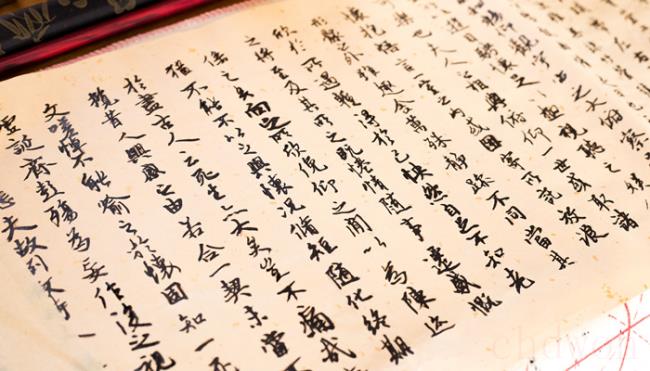 觀宇宙之大俯察
遊目騁懷足以極視聽之
樂也夫人之相與俯仰一世或取諸
懷抱悟言一室之內或因寄所託放浪
形骸之外雖趣舍萬殊靜躁不同當其
欣於所遇暫得於己快然自足不知老
之將至及其所之既倦情隨事遷感慨
係之矣向之所欣俛仰之間以為陳迹
猶不能不以之興懷況脩短隨化終期
於盡古人云死生亦大矣豈不痛哉
攬昔人興感之由若合一契未嘗不
文嗟悼不能喻之於懷固知一死
虛誕齊彭殤為妄作後之視
悲夫故列敘時人